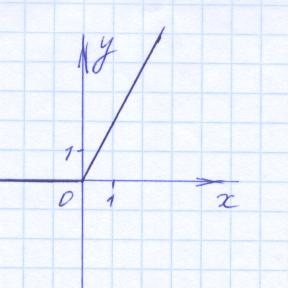 y
1
0 1 x